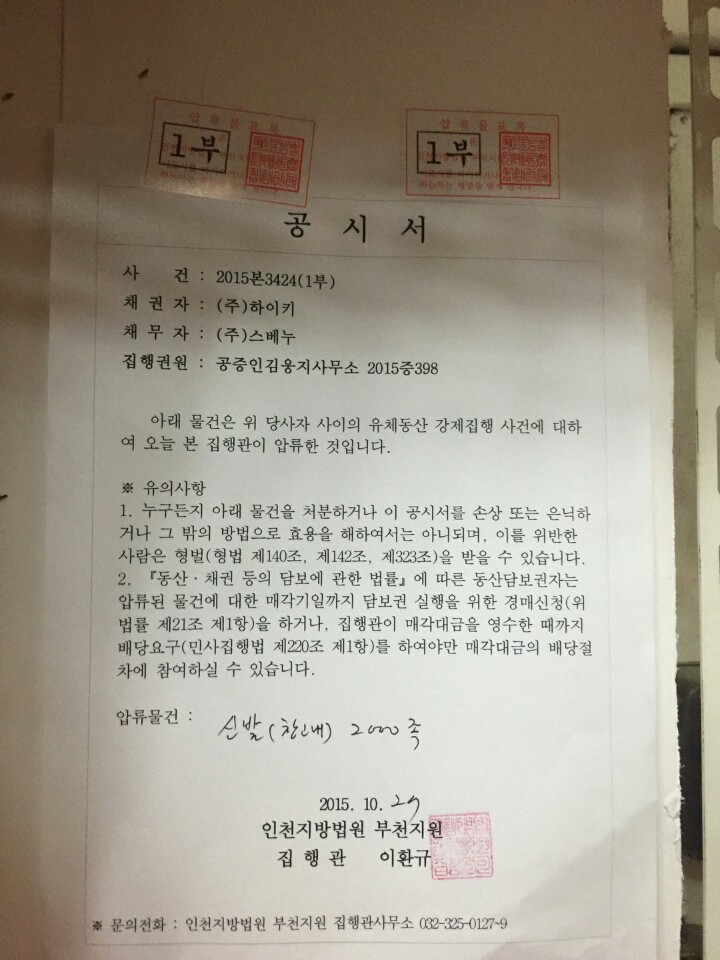 압류물표목
압류물표목
1부
1부
공 시 서
사 건 : 2015본3424(1부)
채 권 자 : (주)하이키
채 무 자 : (주)스베누
집행권원 : 공증인김웅지사무소 2015증398
아래 물건은 위 당사자 사이의 유체동산 강제집행 사건에 대하
여 오늘 본 집행관이 압류한 것입니다.
※ 유의사항
1. 누구든지 아래 물건을 처분하거나 이 공시서를 손상 또는 은닉하
거나 그 밖의 방법으로 효용을 해하여서는 아니되며, 이를 위반한
사람은 형벌(형법 제140조, 제142조, 제323조)을 받을 수 있습니다.
2. 『동산·채권 등의 담보에 관한 법률』에 따른 동산담보권자는
압류된 물건에 대한 매각기일까지 담보권 실행을 위한 경매신청(위
법률 제21조 제1항)을 하거나, 집행관이 매각대금을 영수한 때까지
배당요구(민사집행법 제220조 제1항)를 하여야만 매각대금의 배당절
차에 참여하실 수 있습니다.
압류물건 : 신발(창고내) 2000족
2015. 10. 29
인천지방법원 부천지원
집 행 관 이환규
※ 문의전화 : 인천지방법원 부천지원 집행관사무소 032-325-0127~9